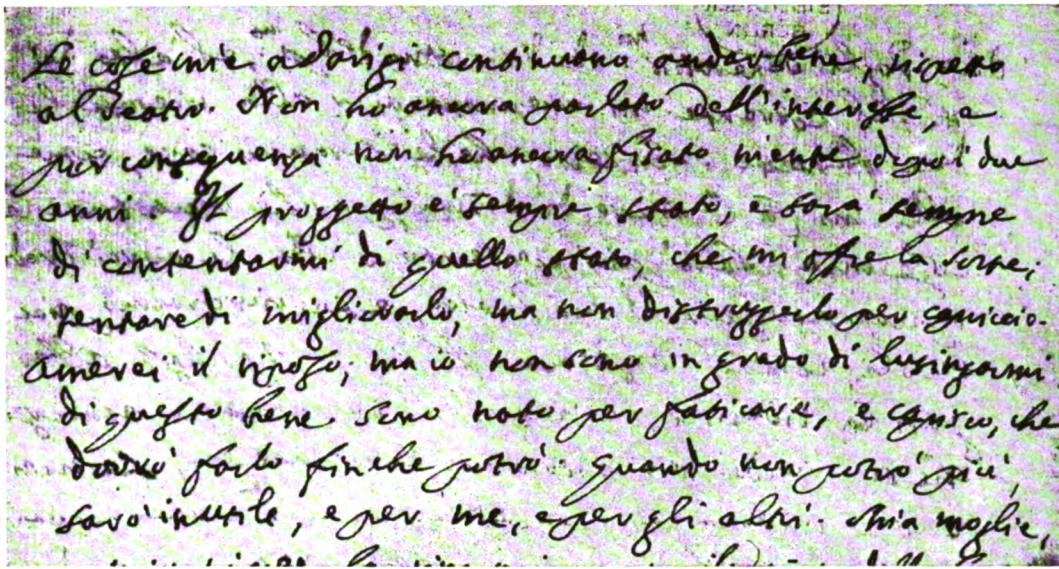 Le cose mie a Parigi continuano andar bene, rispetto
al Teatro. Non ho ancora parlato dell'interesse, e
per conseguenza non ho ancora fissato niente dopo i due
anni. Il proggetto è sempre stato, e sarà sempre
di contentarmi di quello stato, che mi offre la sorte,
tentare di migliorarlo, ma non distruggerlo per capriccio.
Amerei il riposo; ma io non sono in grado di lusingarmi
di questo bene. Sono nato per faticare, e capisco, che
dovrò farlo finche potrò. Quando non potrò più,
sarò inutile, e per me, e per gli altri. Mia moglie,